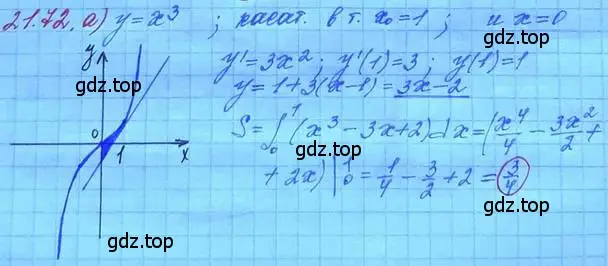 21.72. а) y = x³ ; касат. в т. x₀ = 1 ; и x = 0
gdz.top
y
y' = 3x² ; y'(1) = 3 ; y(1) = 1
gdz.top
y = 1 + 3(x - 1) = 3x - 2
gdz.top
S = ∫₀¹ (x³ - 3x + 2) dx = (x⁴/4 - 3x²/2 +
0 1 x
gdz.top
+ 2x) |₀¹ = 1/4 - 3/2 + 2 = 3/4
gdz.top
gdz.top